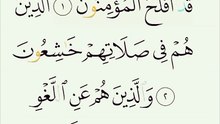 قَدْ أَفْلَحَ الْمُؤْمِنُونَ ١ الَّذِينَ
هُمْ فِي صَلَاتِهِمْ خَٰشِعُونَ
٢ وَالَّذِينَ هُمْ عَنِ اللَّغْوِ